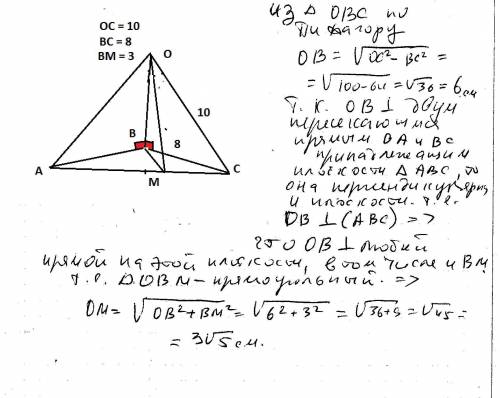 OC = 10
BC = 8
BM = 3
O
10
B
8
A
M
C
из Δ OBC по
Пифагору
OB = √OC² - BC² =
= √100-64 = √36 = 6 см
Т. К. OB ⊥ двум
пересекающимся
прямым BA и BC
принадлежащим
плоскости Δ ABC, то
она перпендикулярна
и плоскости. т. е.
OB ⊥ (ABC) =>
что OB ⊥ любой
прямой на этой плоскости, в том числе и BM.
т. е. Δ OBM - прямоугольный. =>
OM = √OB² + BM² = √6² + 3² = √36+9 = √45 =
= 3√5 см.